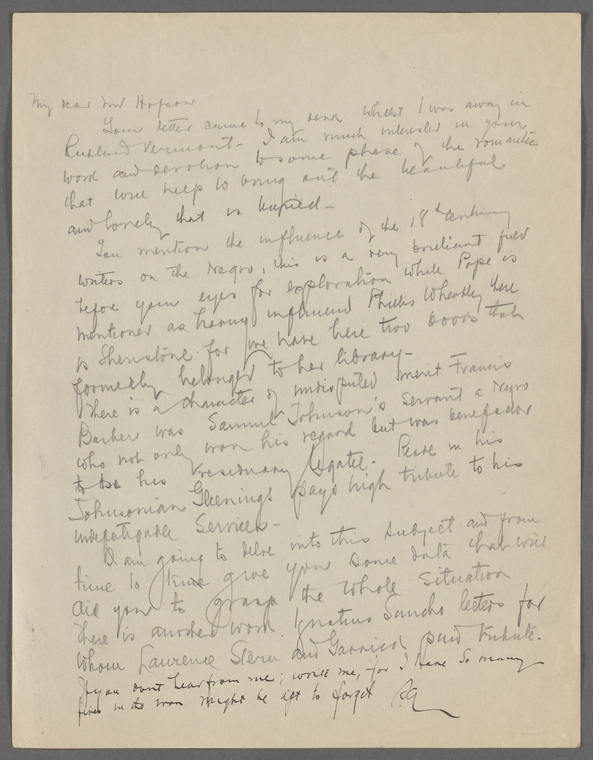 My dear Mr Hopson
Your letter came to my desk whilst I was away in
Rutland Vermont - I am much interested in your
work and devotion to some phase of the romantic
that will help to bring out the beautiful
and lovely that is buried -
You mention the influence of the 18th Century
writers on the Negro, this is a very brilliant field
before your eyes for exploration while Pope is
mentioned as having influenced Phillis Wheatley there
is Shenstone for we have here two books that
formerly belonged to her library -
There is a character of undisputed merit Francis
Barber was Samuel Johnson's Servant a Negro
who not only won his regard but was
to be his residuary legatee. Reade in his
Johnsonian Gleenings pays high tribute to his
indefatigable Services -
I am going to delve into this subject and from
time to time give you some data that will
aid you to grasp the whole situation
There is another work. Ignatius Sancho letters for
whom Laurence Stern and Garrick paid tribute.
If you dont hear from me; write me, for I have so many
fires in the iron might be apt to forget